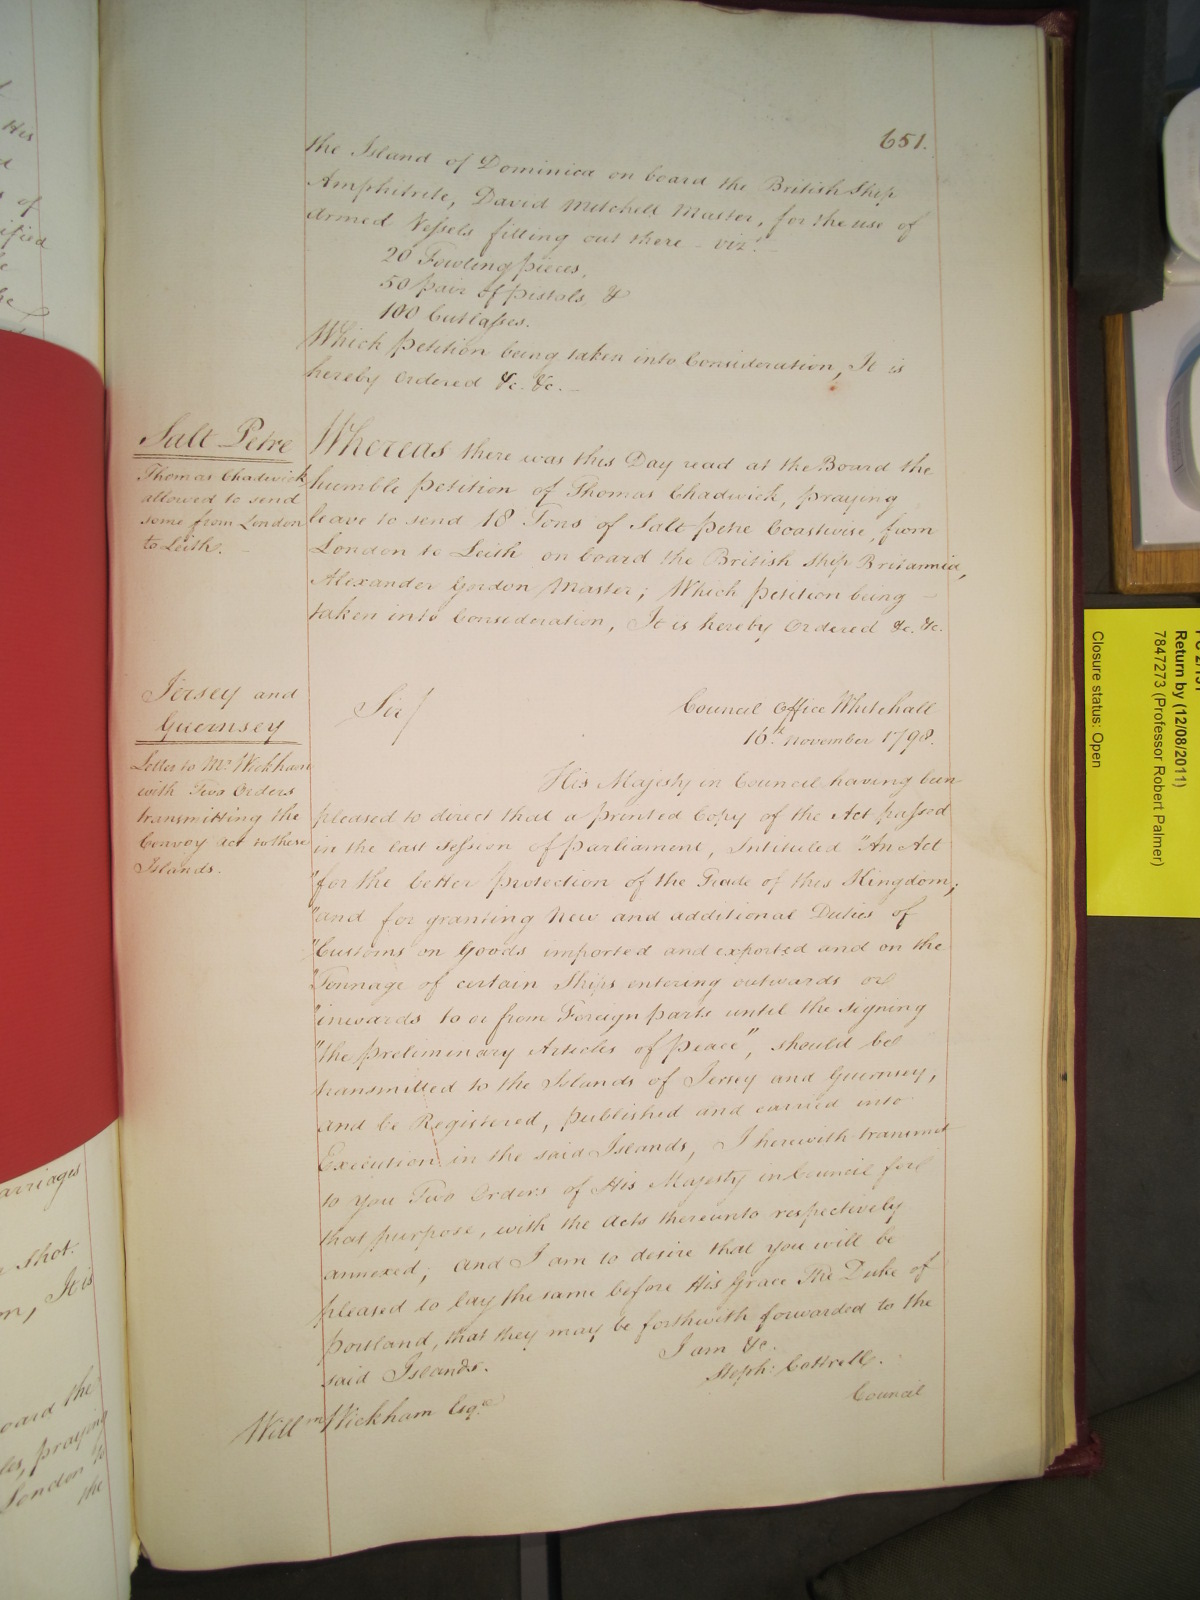 651.
the Island of Dominica on board the British Ship
Amphitrite, David Mitchell Master, for the use of
Armed Vessels fitting out there - vizt.
20 Fowling pieces.
50 pair of pistols &
100 Cutlasses.
Which petition being taken into Consideration, It is
hereby Ordered &c. &c. -
Salt Petre
Thomas Chadwick
allowed to send
some from London
to Leith.
Whereas there was this Day read at the Board the
humble petition of Thomas Chadwick, praying
leave to send 18 Tons of Salt petre Coastwise, from
London to Leith on board the British Ship Britannia,
Alexander Gordon Master; Which petition being
taken into Consideration, It is hereby Ordered &c. &c.
Jersey and
Guernsey
Letter to Mr. Wickham
with Two Orders
transmitting the
Convoy act to these
Islands.
Sir/
Council Office Whitehall
16th. November 1798.
His Majesty in Council having been
pleased to direct that a printed Copy of the Act passed
in the last Session of parliament, Intituled "An Act
"for the better protection of the Trade of this Kingdom;
"and for granting New and additional Duties of
"Customs on Goods imported and exported and on the
"Tonnage of certain Ships entering outwards or
"inwards to or from Foreign parts until the signing
"the preliminary Articles of peace", should be
transmitted to the Islands of Jersey and Guernsey,
and be Registered, published and carried into
Execution in the said Islands, I herewith transmit
to you Two Orders of His Majesty in Council for
that purpose, with the Acts thereunto respectively
annexed; and I am to desire that you will be
pleased to lay the same before His Grace The Duke of
portland, that they may be forthwith forwarded to the
said Islands.
I am &c.
Steph: Cottrell.
Willm. Wickham Esqre.
Council
His
of
arriages
shot.
It is
oard the
praying
London
the
Return by (12/08/2011)
7847273 (Professor Robert Palmer)
Closure status: Open